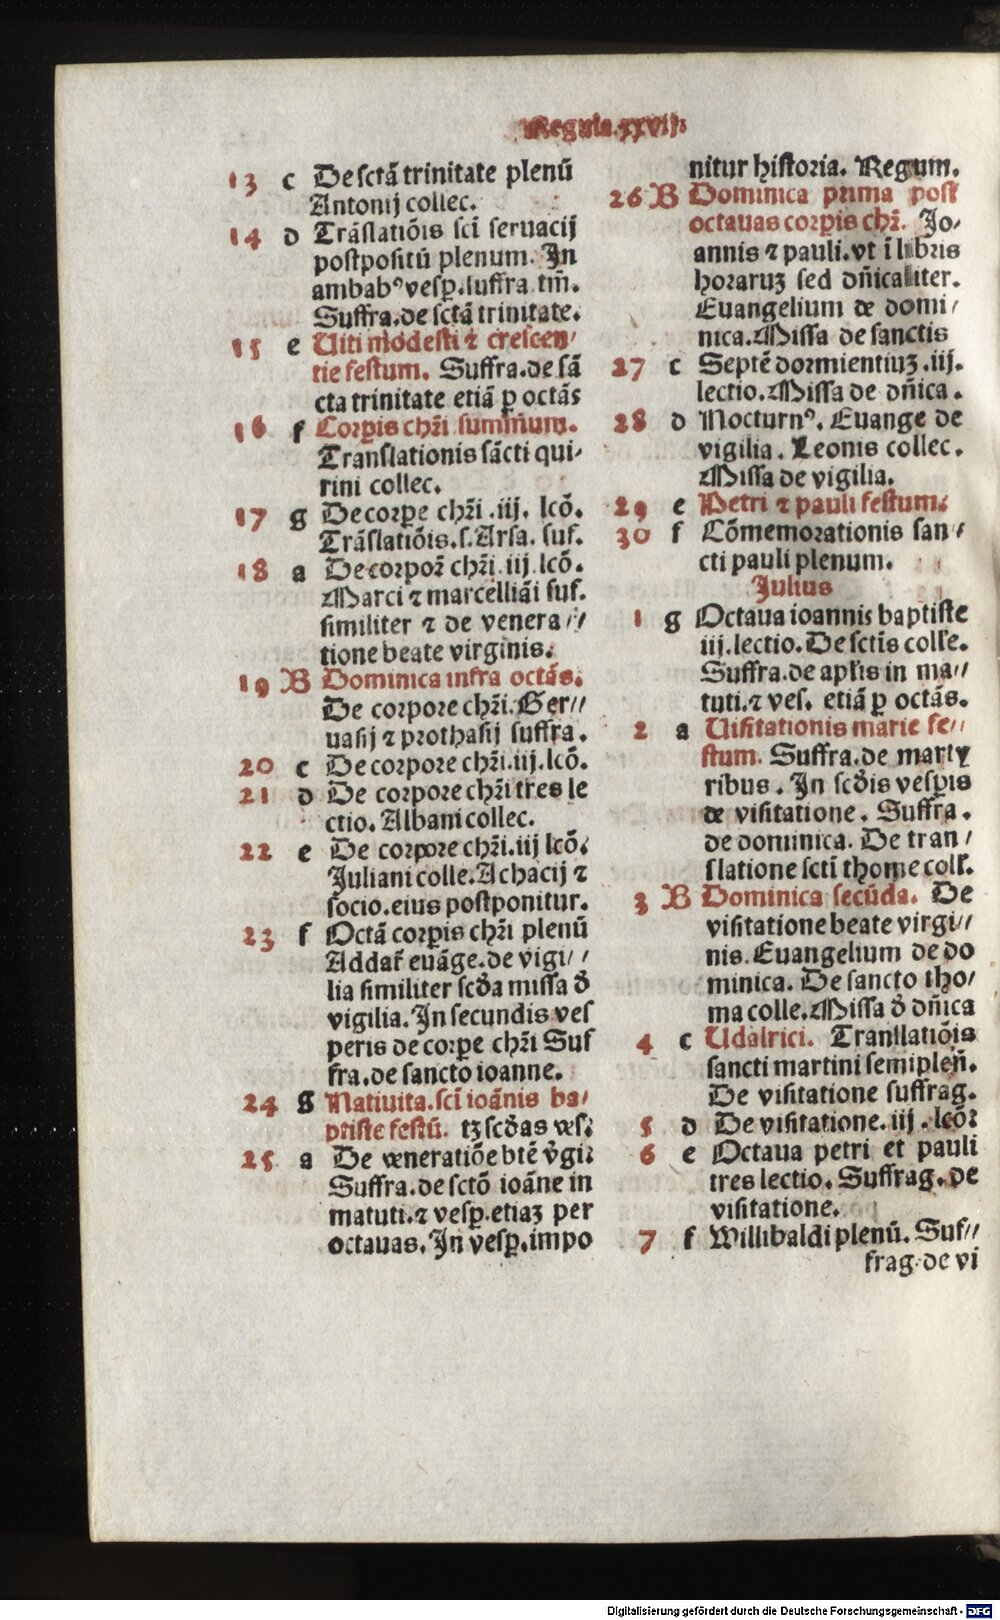 Regula.xxvij.
13 c De sctā trinitate plenū
Antonij collec.
14 d Trāslatiōis scī seruacij
postpositū plenum. In
ambabꝰ vesp̲. suffra. tm̄.
Suffra. de sctā trinitate.
15 e Uiti modesti ⁊ crescen⸗
tie festum. Suffra. de sā
cta trinitate etiā ꝑ octās
16 f Corꝑis chr̄i summum.
Translationis sācti qui⸗
rini collec.
17 g De corꝑe chr̄i .iij. lcō.
Trāslatiōis. s. Arsa. suf.
18 a De corpoꝛ̄ chr̄i .iij. lcō.
Marci ⁊ marcelliāi suf.
similiter ⁊ de venera⸗
tione beate virginis.
19 B Dominica infra octās.
De corpore chr̄i. Ger⸗
uasij ⁊ prothasij suffra.
20 c De corpore chr̄i. iij. lcō.
21 d De corpore chr̄i tres le
ctio. Albani collec.
22 e De corpore chr̄i. iij lcō.
Juliani colle. Achacij ⁊
socio. eius postponitur.
23 f Octā corꝑis chr̄i plenū
Addat̄ euāge. de vigi⸗
lia similiter scd̄a missa d̄
vigilia. In secundis ves
peris de corꝑe chr̄i Suf
fra. de sancto ioanne.
24 g Natiuita. scī ioānis ba⸗
ptiste festū. tʒ scd̄as ves.
25 a De veneratiōe btē v̄gi.
Suffra. de sctō ioāne in
matuti. ⁊ vesp̲. etiaʒ per
octauas. In vesp̲. impo
nitur historia. Regum.
26 B Dominica prima post
octauas corꝑis chr̄i. Jo⸗
annis ⁊ pauli. vt ī libris
horaruʒ sed dn̄icaliter.
Euangelium de domi⸗
nica. Missa de sanctis
27 c Septē dormientiuʒ .iij.
lectio. Missa de dn̄ica.
28 d Nocturnꝰ. Euange de
vigilia. Leonis collec.
Missa de vigilia.
29 e Petri ⁊ pauli festum.
30 f Cōmemorationis san⸗
cti pauli plenum.
Julius
1 g Octaua ioannis baptiste
iij. lectio. De sctīs colle.
Suffra. de apl̄is in ma⸗
tuti. ⁊ ves. etiā ꝑ octās.
2 a Uisitationis marie fe⸗
stum. Suffra. de marty
ribus. In scd̄is vesꝑis
de visitatione. Suffra.
de dominica. De tran⸗
slatione sctī thome coll.
3 B Dominica secūda. De
visitatione beate virgi⸗
nis. Euangelium de do
minica. De sancto tho⸗
ma colle. Missa d̄ dn̄ica
4 c Udalrici. Translatiōis
sancti martini semiplen̄.
De visitatione suffrag.
5 d De visitatione. iij. lcō.
6 e Octaua petri et pauli
tres lectio. Suffrag. de
visitatione.
7 f Willibaldi plenū. Suf⸗
frag. de vi
Digitalisierung gefördert durch die Deutsche Forschungsgemeinschaft - DFG